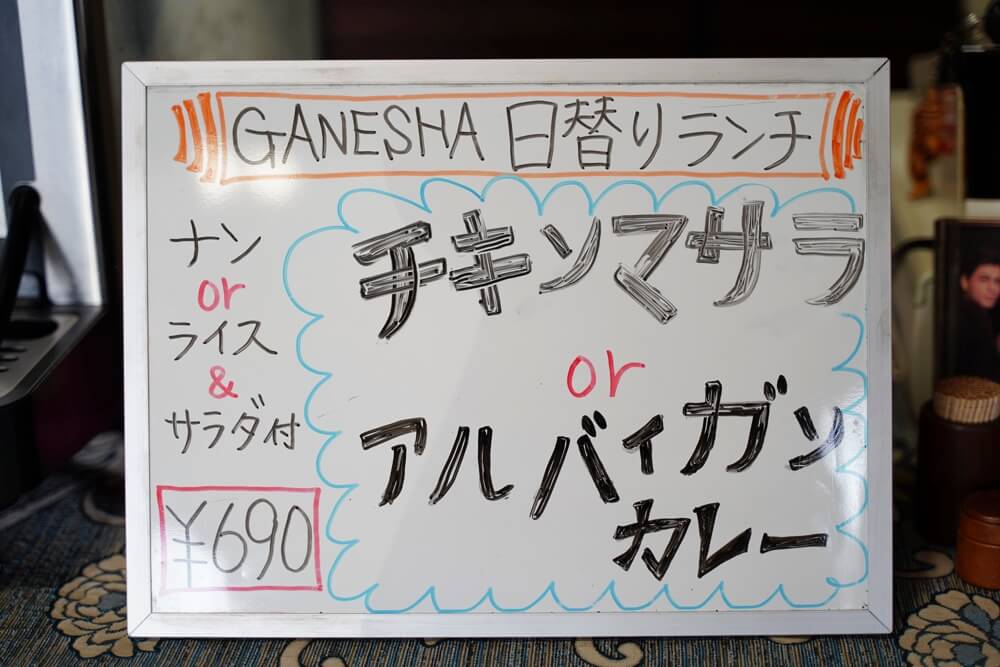 GANESHA 日替りランチ
ナン
or
ライス
&
サラダ付
¥690
チキンマサラ
or
アルバイガン
カレー